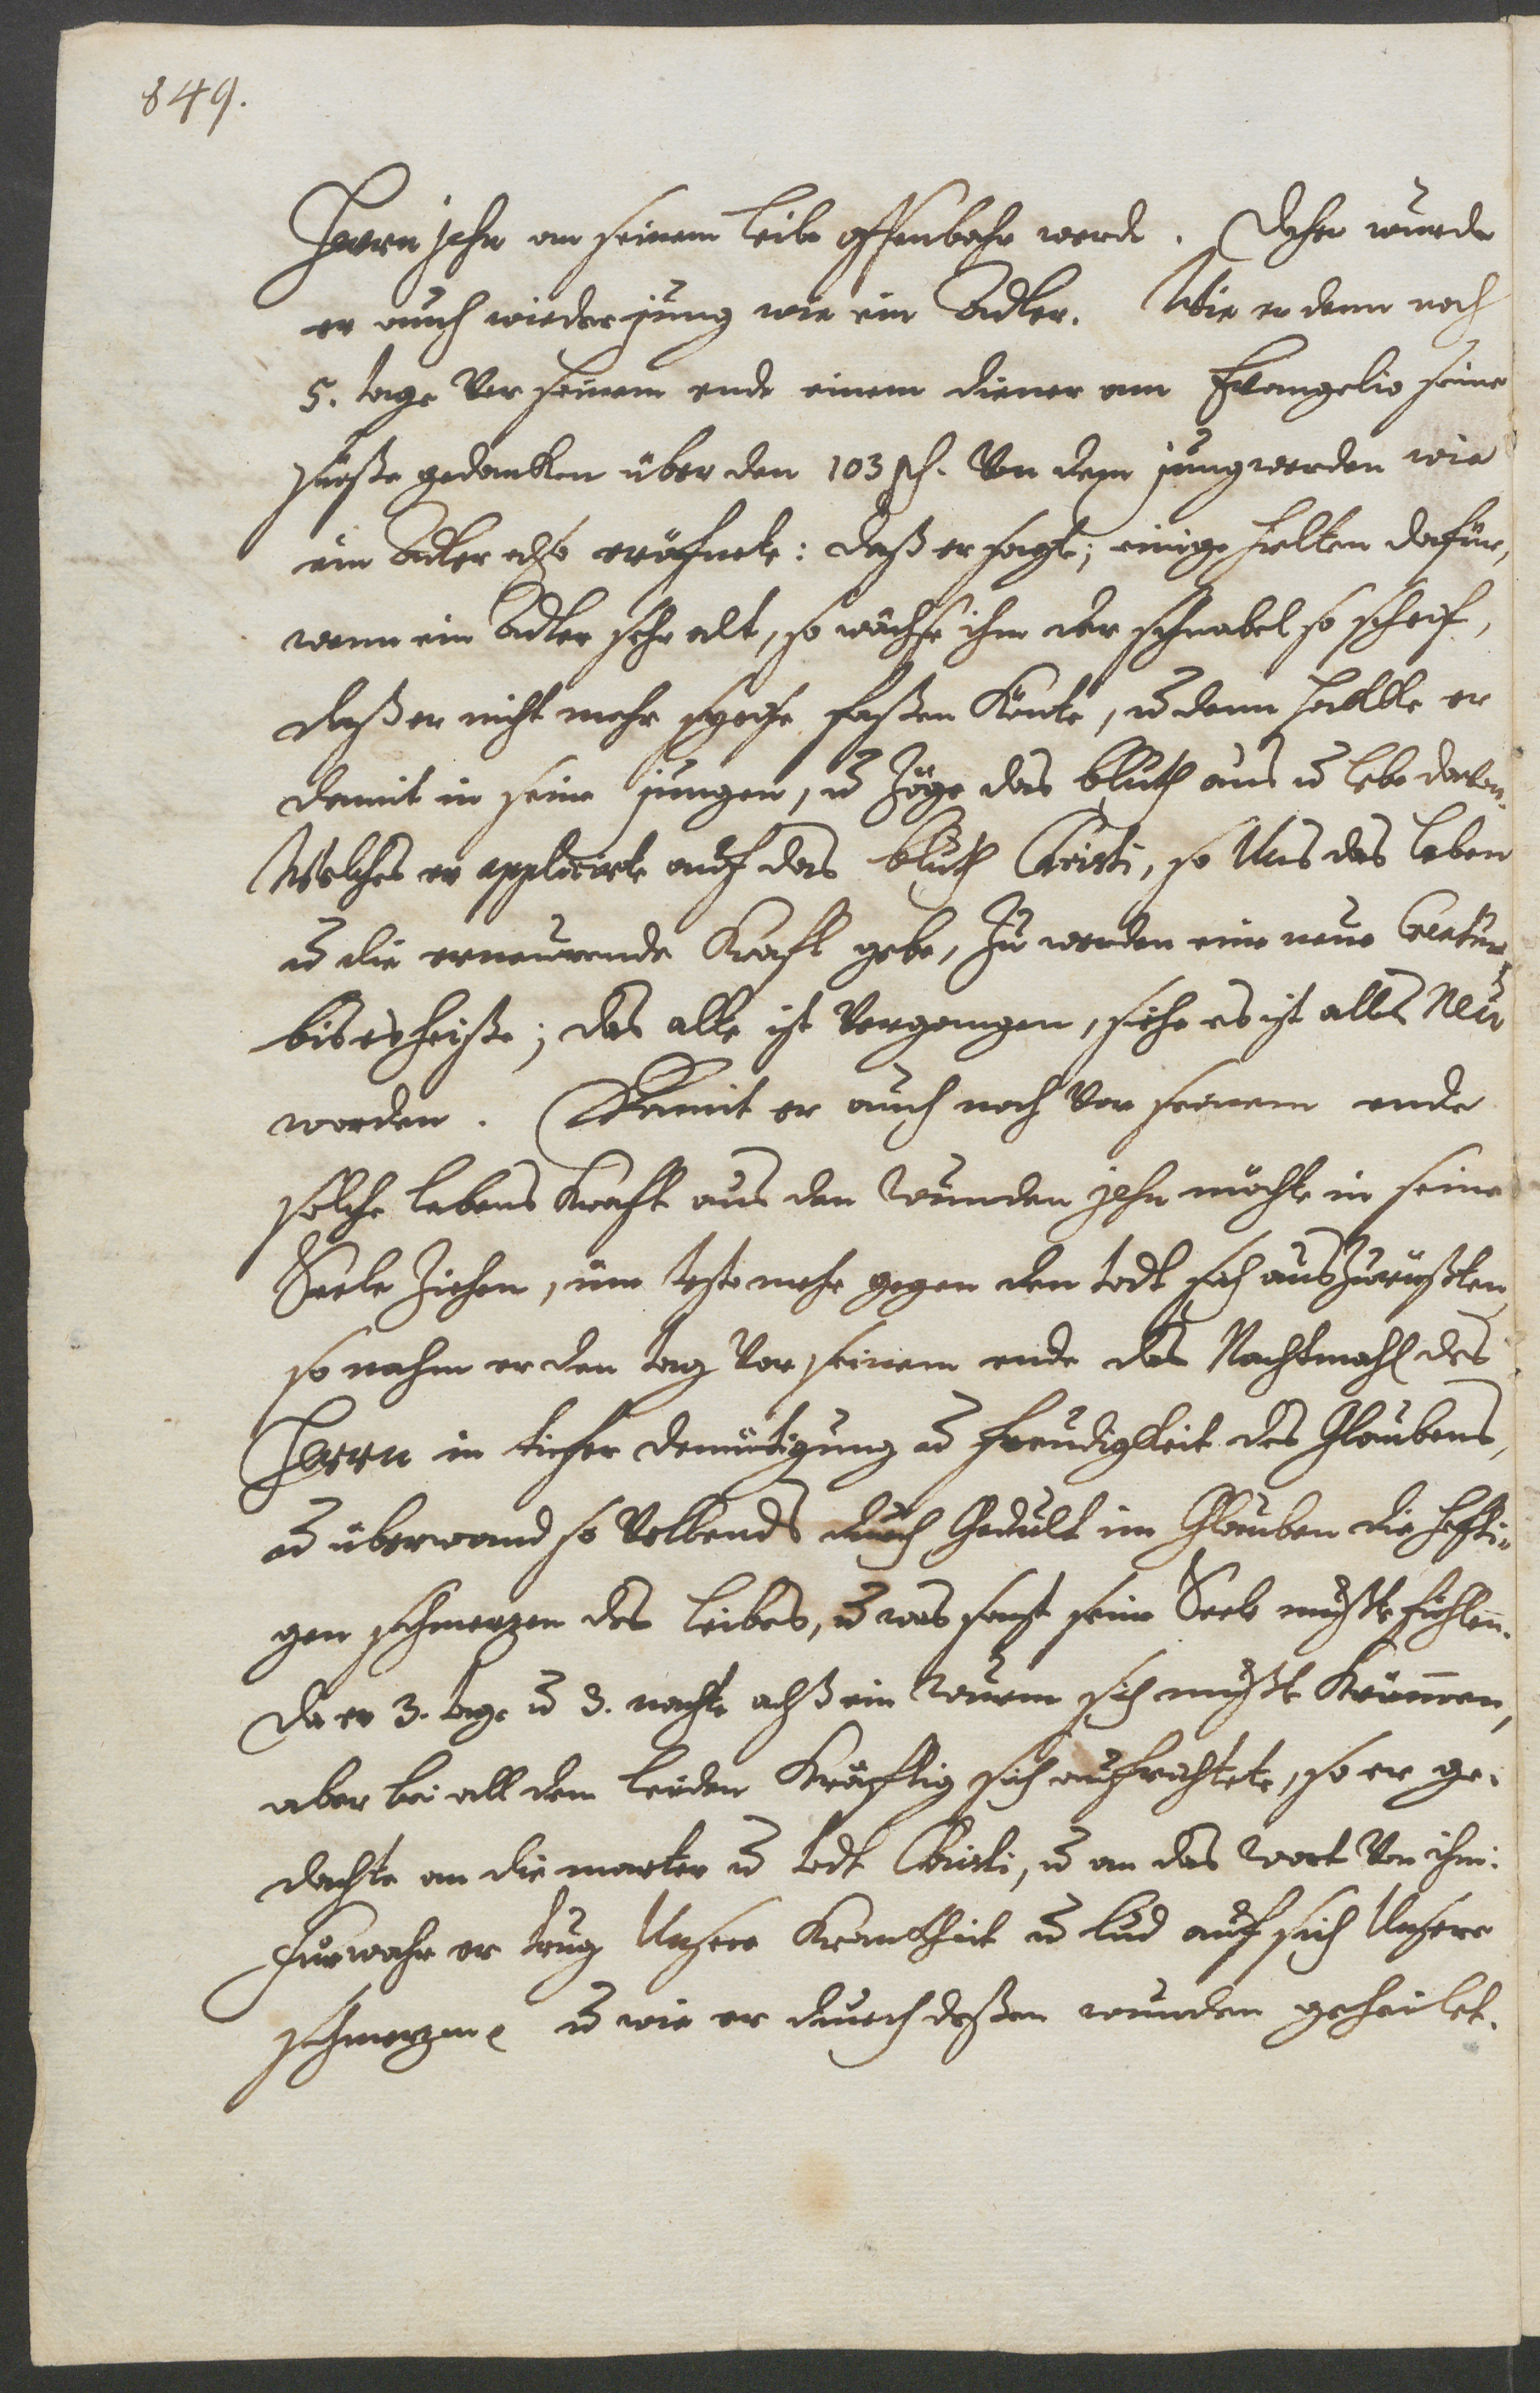 849.
Herrn jesu an seinem leibe offenbahr werde. Daher wurde
er auch wieder jung wie ein Adler. Wie er denn noch
5. tage Vor seinem ende einem diener am Evangelio seine
süeße gedanken über den 103 ps. Von dem jung werden wie
ein Adler also eröfnete: daß er sagte; einige hielten dafür,
wenn ein Adler sehr alt, so wächse ihm der schnabel so scheif,
daß er nicht mehr speise faßen könte, u denn hakkte er
damit in seine jungen, u Zöge das bluth aus u lebe davon.
Welches er applicirte auf das bluth Christi, so Uns das leben
u die erneurende Kraft gebe, Zu werden eine neue Creatur,
bis es heiße; das alte ist Vergangen, siehe es ist alles Neu
worden. Damit er auch noch Vor seinem ende
solche lebens Kraft aus den wunden jesu möchte in seine
Seele Ziehen, um desto mehr gegen den todt sich ausZurüsten,
so nahm er den tag Vor seinem ende das Nachtmahl des
Herrn in tiefer demütigung u freudigkeit des Glaubens,
u überwand so Vollends durch Gedult im Glauben die hefti-
gen schmerzen des leibes, u was sonst seine Seele muste fühlen.
Da er 3. tage u 3. nachte alß ein wurm sich muste Krümmen,
aber bei all dem leiden Kräftig sich aufrichtete, so er ge-
dachte an die marter u todt Christi, u an das wort Von ihm:
fürwahr er trug Unsere Krankheit u lud auf sich Unsere
schmerzen u wie er durch deßen wunden geheilet.